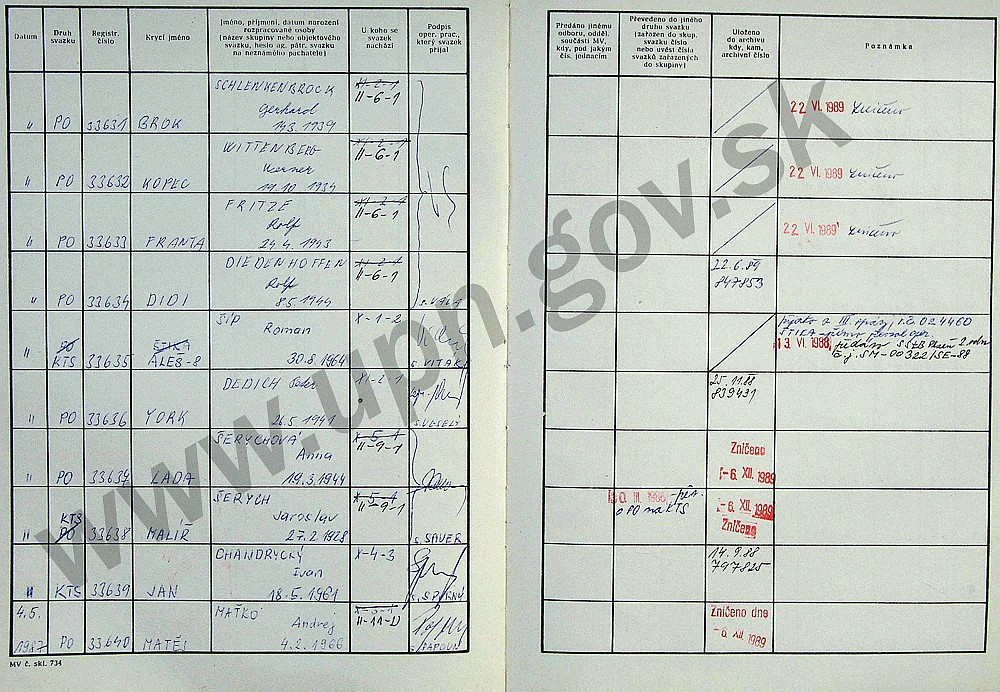 Datum
Druh svazku
Registr. číslo
Krycí jméno
Jméno, příjmení, datum narození rozpracované osoby (název skupiny nebo objektového svazku, heslo ag. pátr. svazku na neznámého pachatele)
U koho se svazek nachází
Podpis oper. prac., který svazek přijal
Předáno jinému odboru, odděl. součásti MV, kdy, pod jakým čís. jednacím
Převedeno do jiného druhu svazku (zařazen do skup. svazku číslo nebo uvést čísla svazků zařazených do skupiny)
Uloženo do archivu kdy, kam, archivní číslo
Poznámka
SCHLENKENBROCK XI-2-1
Gerhard II-6-1
" PO 33631 BROK 14.3.1939
22 VI. 1989 Zničeno
WITTENBERG XI-2-1
Werner II-6-1
" PO 33632 KOPEC 19.10 1934
22 VI. 1989 Zničeno
FRITZE XI-2-1
Rolf II-6-1
" PO 33633 FRANTA 24.4.1943
22 VI. 1989 Zničeno
DIEDENHOFFEN XI-2-1
Rolf II-6-1
" PO 33634 DIDI 8.5.1944
22.6.89
847853
ŠÍP X-1-2
Roman
PO ŠTIKA
" KTS 33635 ALEŠ-8 30.8.1964
024460
ŠTIKA
13. VI. 1988 předán
č.j. SM-00322/SE-88
DEDICH Petr XI-2-1
" PO 33636 YORK 26.5.1941 s. VESELÝ
25.11.88
839431
ŠERYCHOVÁ X-5-1
Anna II-9-1
" PO 33637 LADA 19.3.1944
Zničeno
-6. XII. 1989
ŠERYCH X-5-1
KTS Jaroslav II-9-1
" PO 33638 MALÍŘ 27.2.1928 s. SAUER
z PO na KTS
-6. XII. 1989
Zničeno
CHANDRYCKÝ X-4-3
Ivan
" KTS 33639 JAN 18.5.1961
14.9.88
797825
4.5. MAŤKO
Andrej
1987 PO 33640 MATĚJ 4.2.1966
Zničeno dne
-6. XII. 1989
MV č. skl. 734
www.upn.gov.sk